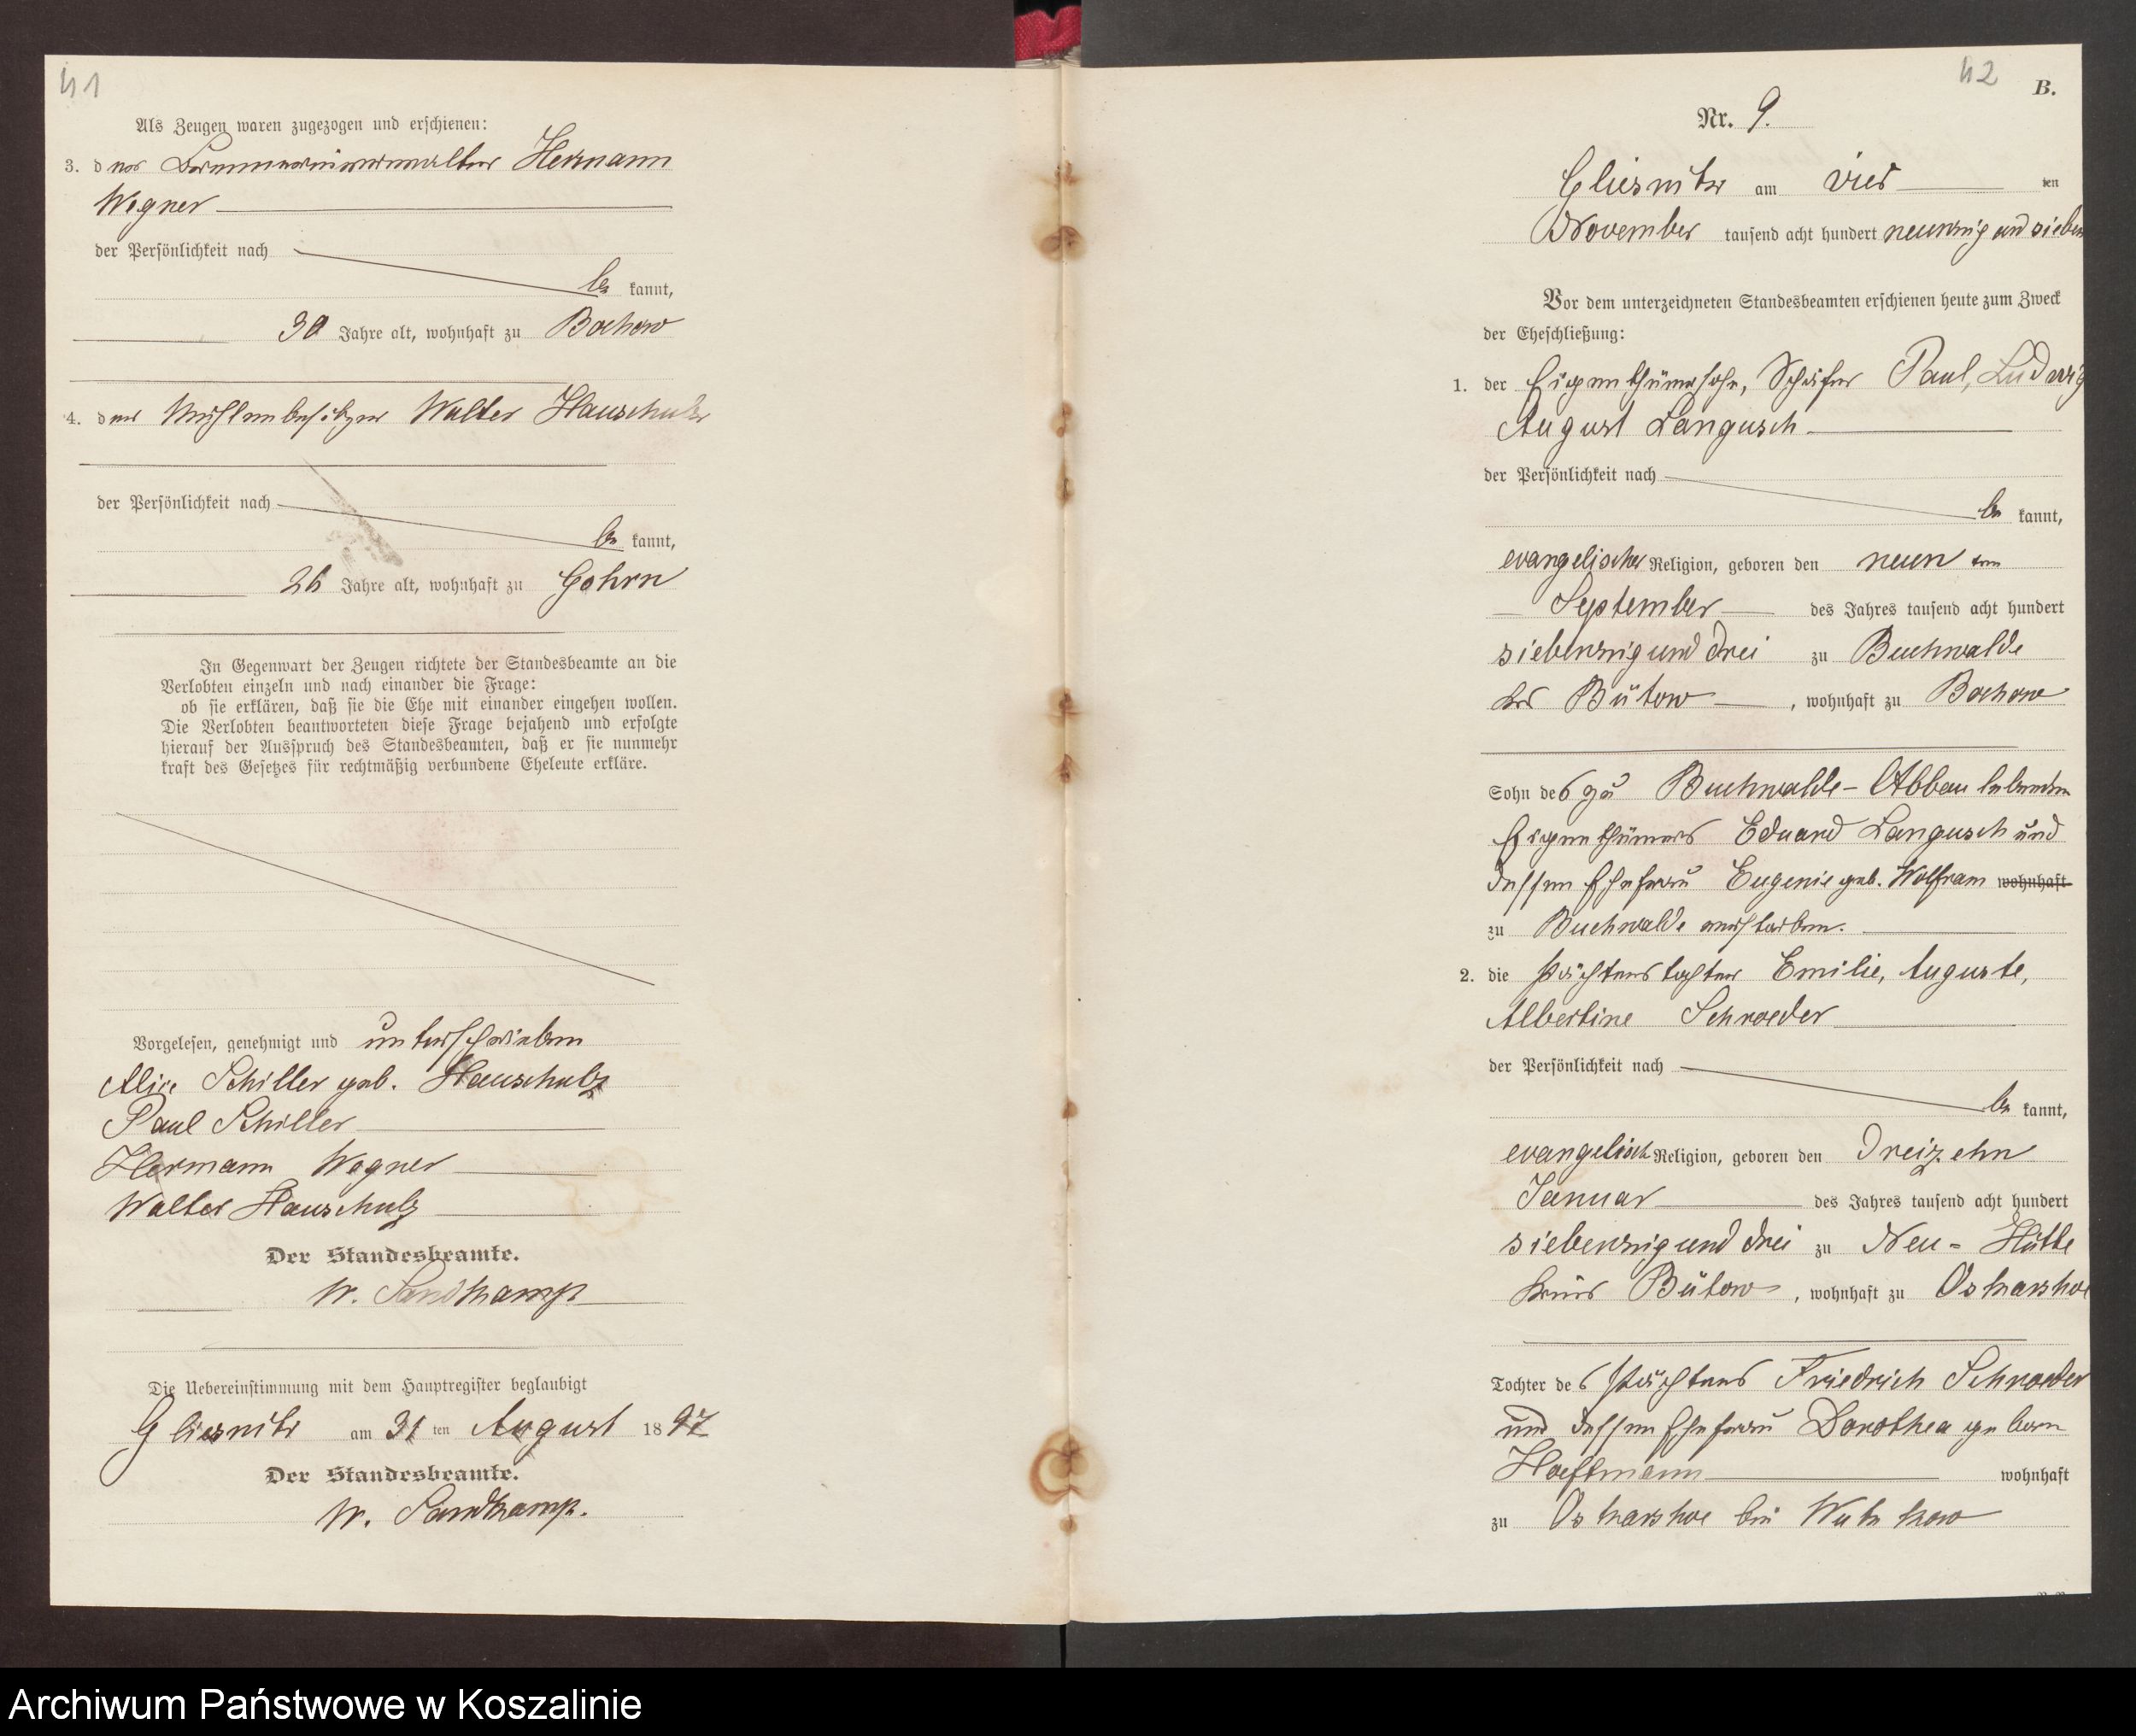 41
Als Zeugen waren zugezogen und erschienen:
3. der Hermann
Wegner
der Persönlichkeit nach
be kannt,
30 Jahre alt, wohnhaft zu Bochow
4. der Mühlenbesitzer Walter Hauschulz
der Persönlichkeit nach
be kannt,
26 Jahre alt, wohnhaft zu Gohrn
In Gegenwart der Zeugen richtete der Standesbeamte an die
Verlobten einzeln und nach einander die Frage:
ob sie erklären, daß sie die Ehe mit einander eingehen wollen.
Die Verlobten beantworteten diese Frage bejahend und erfolgte
hierauf der Ausspruch des Standesbeamten, daß er sie nunmehr
kraft des Gesetzes für rechtmäßig verbundene Eheleute erkläre.
Vorgelesen, genehmigt und unterschrieben
Alice Schiller geb. Hauschulz
Paul Schiller
Hermann Wegner
Walter Hauschulz
Der Standesbeamte.
W. Sandkamp
Die Uebereinstimmung mit dem Hauptregister beglaubigt
Gliesnitz am 31 ten August 18 97
Der Standesbeamte.
W. Sandkamp.
42
B.
Nr. 9.
Gliesnitz am vier ten
November tausend acht hundert neunzig und sieben
Vor dem unterzeichneten Standesbeamten erschienen heute zum Zweck
der Eheschließung:
1. der Eigenthümersohn, Schäfer Paul, Ludwig
August Langusch
der Persönlichkeit nach
be kannt,
evangelischer Religion, geboren den neun ten
September des Jahres tausend acht hundert
siebenzig und drei zu Buchwalde
Krs Bütow, wohnhaft zu Bochow
Sohn des zu Buchwalde-Abbau lebenden
Eigenthümers Eduard Langusch und
dessen Ehefrau Eugenie geb. Wolfram wohnhaft
zu Buchwalde verstorben.
2. die Pächterstochter Emilie, Auguste,
Albertine Schroeder
der Persönlichkeit nach
be kannt,
evangelisch Religion, geboren den dreizehn
Januar des Jahres tausend acht hundert
siebenzig und drei zu Neu-Hütte
Kreis Bütow, wohnhaft zu Oskarshoe
Tochter des Pächters Friedrich Schroeder
und dessen Ehefrau Dorothea geborn
Hoeftmann wohnhaft
zu Oskarshoe bei Wutzkow
Archiwum Państwowe w Koszalinie